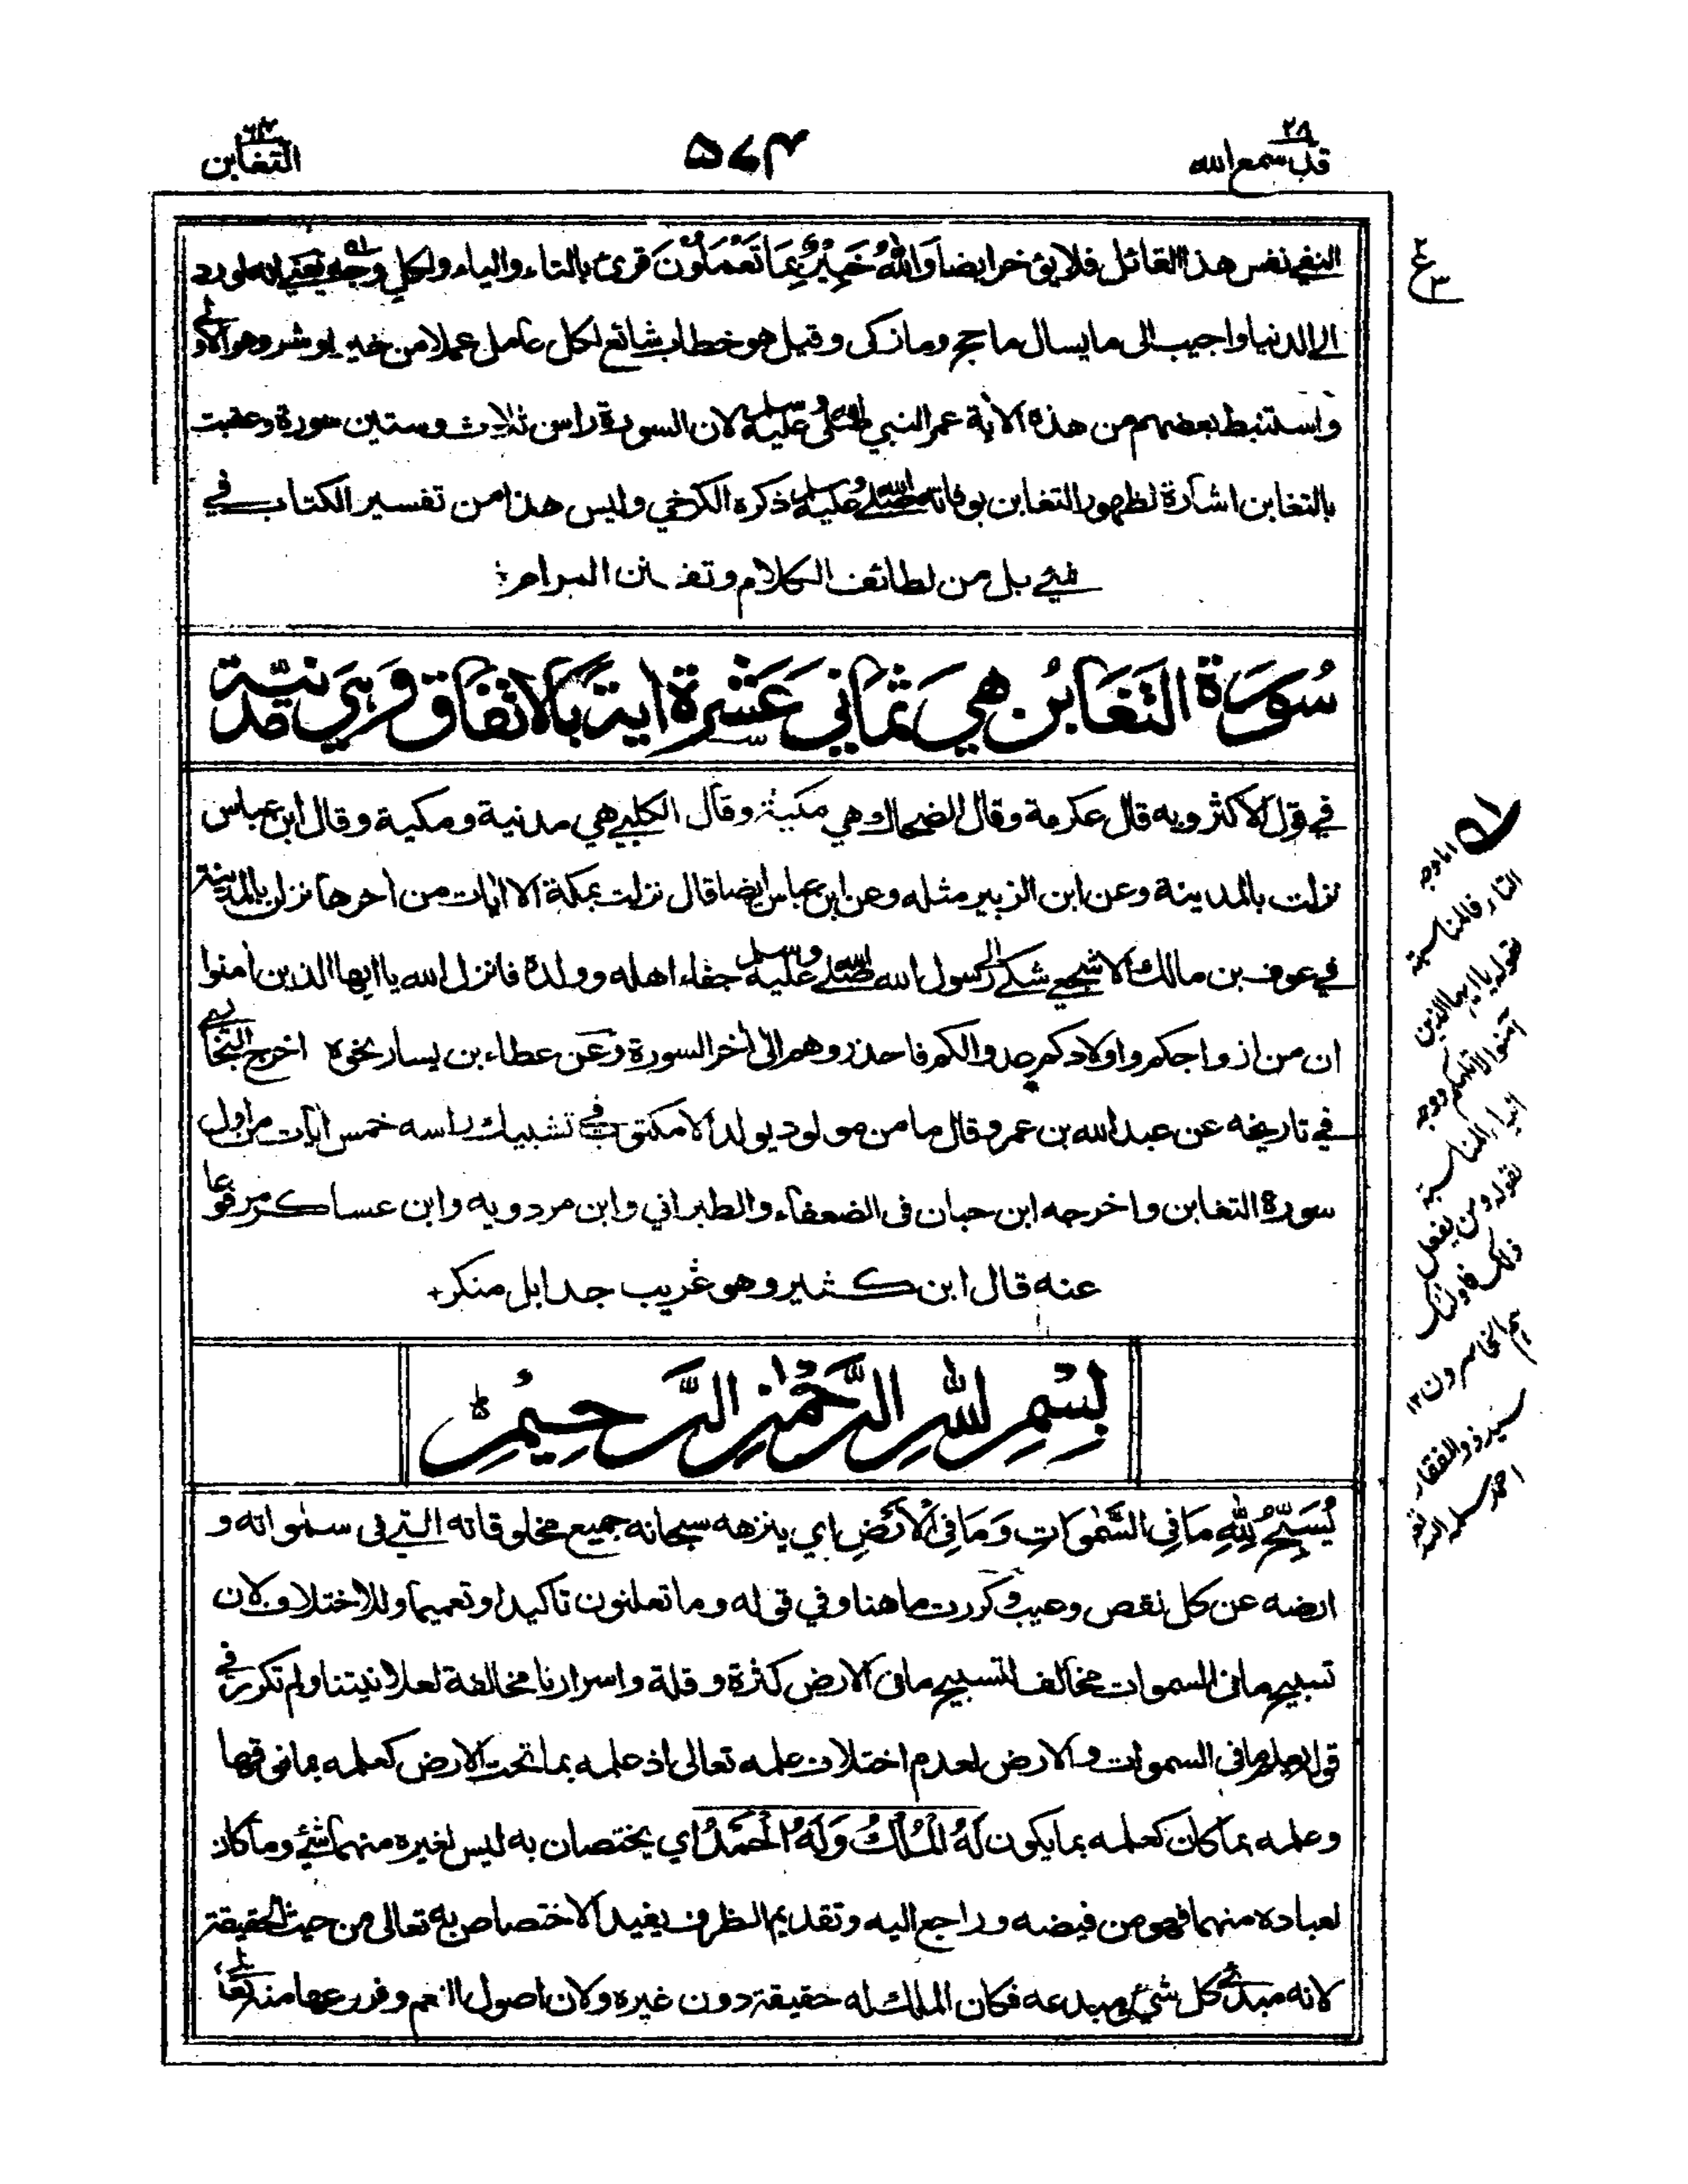 قد سمع الله ٢٨
٥٧٤
التغابن ٦٤
النفي نفس هذا القائل فلا يؤخر ايضا وَاللهُ خَبِيْرٌۢ بِمَا تَعْمَلُوْنَ قرئ بالتاء والياء ولكل وجه يعني انه لو رد
الى الدنيا واجيب الى ما يسال ما حج وما زكى وقيل هو خطاب شائع لكل عامل عملا من خير او شر وهو الاولى
واستنبط بعضهم من هذه الاية عمر النبي صلى الله عليه وسلم لان السورة راس ثلاث وستين سورة وعقبت
بالتغابن اشارة لظهور التغابن بوفاته صلى الله عليه وسلم ذكره الكرخي وليس هذا من تفسير الكتاب في
شئ بل من لطائف الكلام وتفنن المرام
سُوْرَةُ التَّغَابُنِ هِيَ ثَمَانِي عَشْرَةَ اٰيَةً بِالْاِتِّفَاقِ وَهِيَ مَدَنِيَّة
في قول الاكثر وبه قال عكرمة وقال الضحاك وهي مكية وقال الكلبي هي مدنية ومكية وقال ابن عباس
نزلت بالمدينة وعن ابن الزبير مثله وعن ابن عباس ايضا قال نزلت بمكة الا ايات من اخرها نزلن بالمدينة
في عوف بن مالك الاشجعي شكى الى رسول الله صلى الله عليه وسلم جفاء اهله وولده فانزل الله يا ايها الذين امنوا
ان من ازواجكم واولادكم عدوا لكم فاحذروهم الى اخر السورة وعن عطاء بن يسار نحوه اخرج البخاري
في تاريخه عن عبد الله بن عمرو قال ما من مولود يولد الا مكتوب في تشبيك راسه خمس ايات من اول
سورة التغابن واخرجه ابن حبان فى الضعفاء والطبراني وابن مردويه وابن عساكر مرفوعا
عنه قال ابن كثير وهو غريب جدا بل منكر
بِسْمِ اللهِ الرَّحْمٰنِ الرَّحِيْمِ
يُسَبِّحُ لِلّٰهِ مَا فِى السَّمٰوَاتِ وَمَا فِى الْاَرْضِ اي ينزهه سبحانه جميع مخلوقاته التي فى سمٰواته و
ارضه عن كل نقص وعيب وكررت ما هنا وفي قوله وما تعلنون تاكيدا وتعميما وللاختلاف لان
تسبيح ما فى السموات مخالف لتسبيح ما فى الارض كثرة وقلة واسرارنا مخالفة لعلانيتنا ولم تكرر في
قوله يعلم ما فى السموات والارض لعدم اختلاف علمه تعالى اذ علمه بما تحت الارض كعلمه بما فوقها
وعلمه بما كان كعلمه بما يكون لَهُ الْمُلْكُ وَلَهُ الْحَمْدُ اي يختصان به ليس لغيره منهما شئ وما كان
لعباده منهما فهو من فيضه وراجع اليه وتقديم الظرف يفيد الاختصاص به تعالى من حيث الحقيقة
لانه مبدئ كل شئ ومبدعه فكان الملك له حقيقة دون غيره ولان اصول النعم وفروعها منه تعالى
ع ٢ ٣
اما وجه
التاء فالمناسبة
لقوله يا ايها الذين
آمنوا لا تلهكم ووجه
الياء المناسبة
لقوله ومن يفعل
ذلك فاولئك
هم الخاسرون ١٢
سيد ذو الفقار
احمد سلمه الله